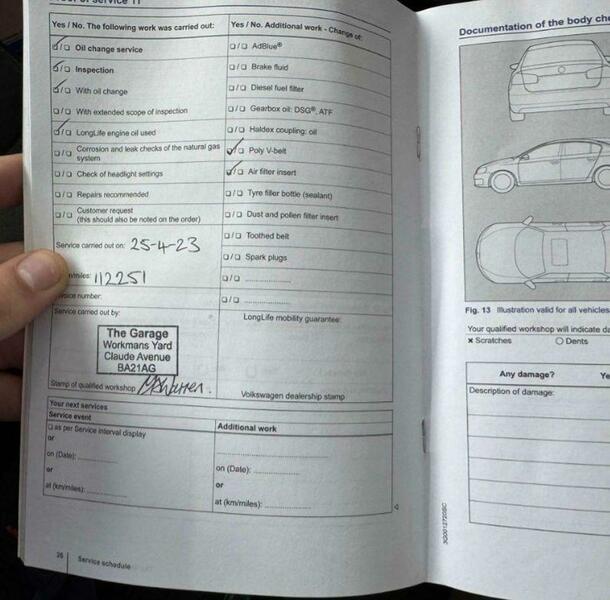 of service 11
Yes / No. The following work was carried out:
☑/☐ Oil change service
☑/☐ Inspection
☑/☐ With oil change
☐/☐ With extended scope of inspection
☑/☐ LongLife engine oil used
☐/☐ Corrosion and leak checks of the natural gas
system
☐/☐ Check of headlight settings
☐/☐ Repairs recommended
☐/☐ Customer request
(this should also be noted on the order)
Service carried out on: 25-4-23
/miles: 112251
number:
Service carried out by:
The Garage
Workmans Yard
Claude Avenue
BA21AG
Stamp of qualified workshop
Yes / No. Additional work - Change of:
☐/☐ AdBlue®
☐/☐ Brake fluid
☐/☐ Diesel fuel filter
☐/☐ Gearbox oil: DSG®, ATF
☐/☐ Haldex coupling: oil
☑/☐ Poly V-belt
☑/☐ Air filter insert
☐/☐ Tyre filler bottle (sealant)
☐/☐ Dust and pollen filter insert
☐/☐ Toothed belt
☐/☐ Spark plugs
☐/☐ ....................
☐/☐ ....................
LongLife mobility guarantee:
Volkswagen dealership stamp
Your next services
Service event
☐ as per Service interval display
or
on (Date): ..............
or
at (km/miles): ..............
Additional work
........................................
on (Date): ..............
or
at (km/miles): ..............
26 | Service schedule
Documentation of the body che
Fig. 13 Illustration valid for all vehicles
Your qualified workshop will indicate da
× Scratches ○ Dents
Any damage? Ye
Description of damage:
3G0012720BC